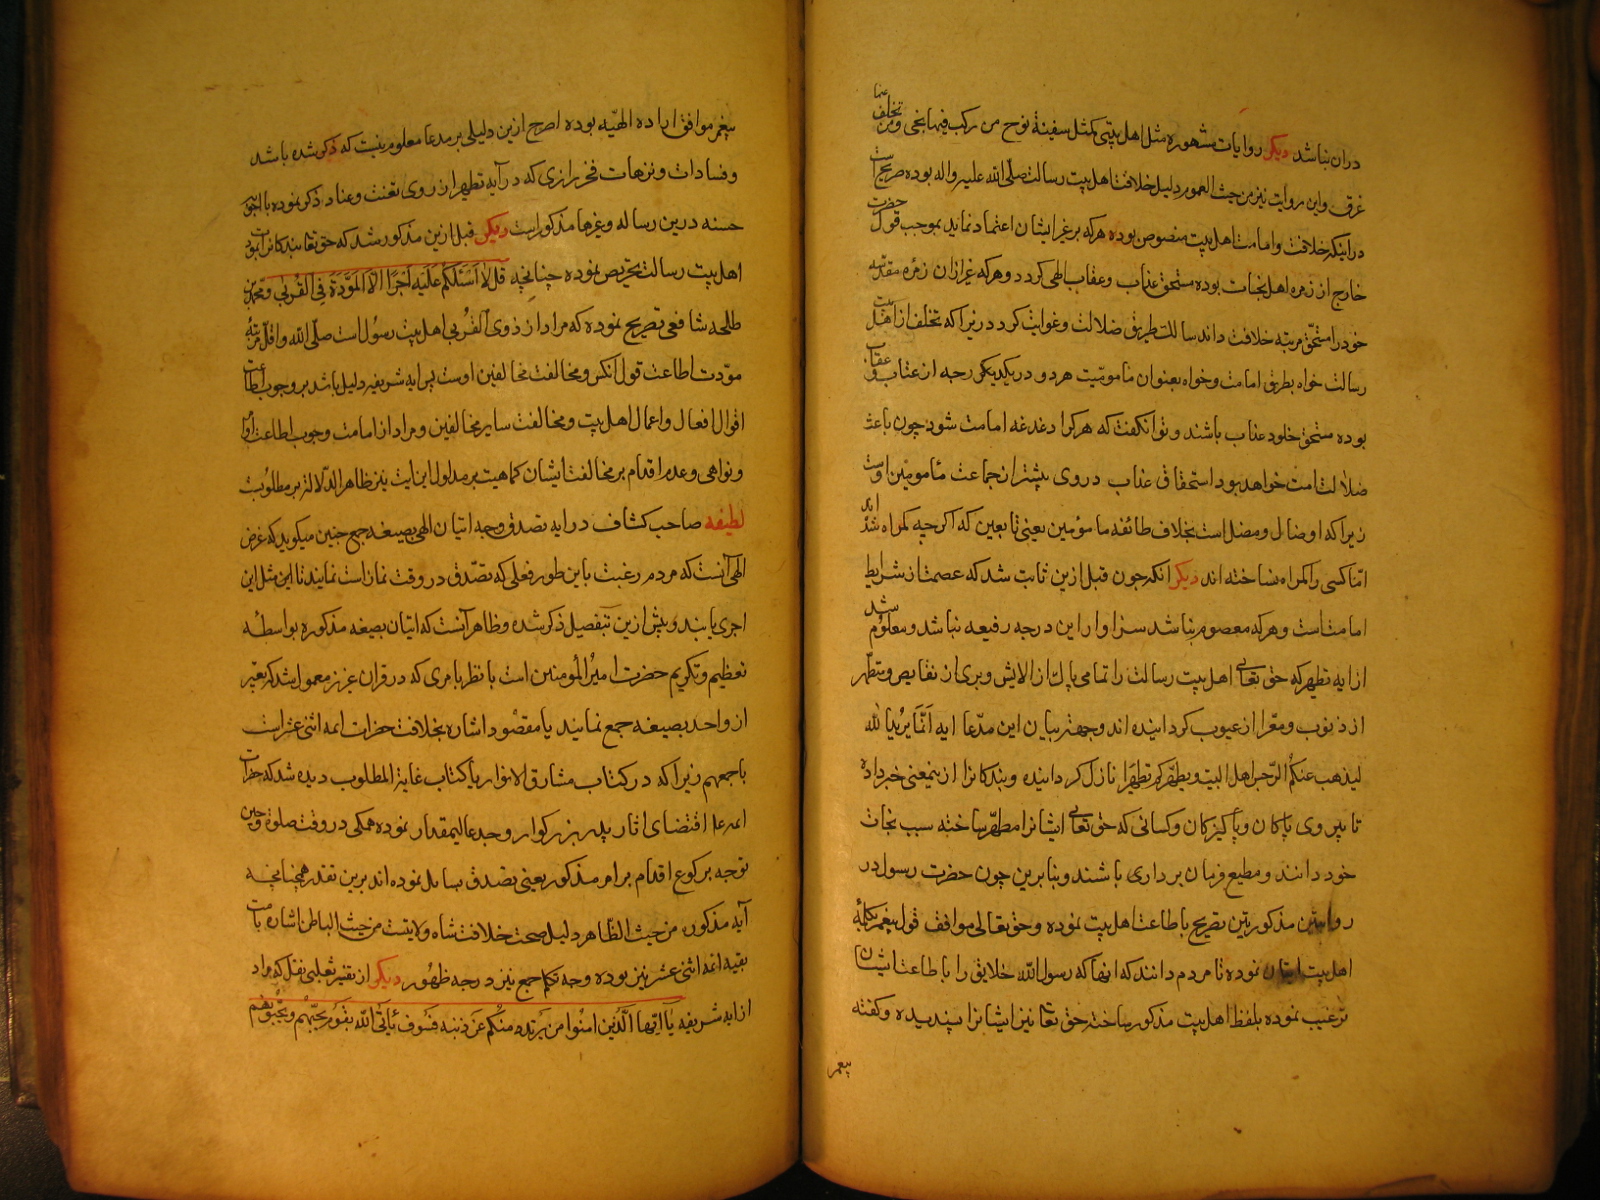 دران نباشد دیکر روایات مشهوره مثل اهل بیتی کمثل سفینة نوح من رکب فیها نجی ومن تخلف عنها
غرق واین روایت نیز من حیث العموم دلیل خلافت اهل بیت رسالت صلّی الله علیه واله بوده صریح است
در اینکه خلافت وامامت اهل بیت منصوص بوده هرکه بر غیر ایشان اعتماد نماید بموجب قول حضرت
خارج از زمره اهل نجات بوده مستحق عذاب وعقاب الهی کردد وهرکه غیر ازان زمره مقدسه
خود را مستحق مرتبه خلافت داند سالک طریق ضلالت وغوایت کردد زیرا که تخلف از اهل بیت
رسالت خواه بطریق امامت وخواه بعنوان مامومیت هر دو در یکدیکر رجه از عتاب وعقاب
بوده مستحق خلود عذاب باشند وتوان گفت که هرکرا دغدغه امامت شود چون باعث
ضلالت امت خواهد بود استحقاق عذاب در وی بیشتر از جماعت مأمومین اوست
زیرا که او ضال ومضل است بخلاف طائفه مامومین یعنی تابعین که اکرچه کمراه شده اند
امّا کسی را کمراه نساخته اند دیکر انکه چون قبل ازین ثابت شد که عصمت از شرایط
امامت است وهرکه معصوم نباشد سزاوار این درجه رفیعه نباشد ومعلوم شد
از ایه تطهیر که حق تعالی اهل بیت رسالت را تمامی پاک از الایش وبری از نقایص ومتطهّر
از ذنوب ومعرا از عیوب کردانیده اند وجهة بیان این مدّعا ایه انّما یرید الله
لیذهب عنکم الرّجس اهل البیت ویطهّرکم تطهیرا نازل کردانیده وبندکانرا ازینمعنی خبر داده
تا پیروی پاکان وپاکیزکان وکسانی که حق تعالی ایشانرا مطهّر ساخته سبب نجات
خود دانند ومطیع وفرمان برداری باشند وبنابرین چون حضرت رسول در
روایتین مذکورتین تصریح باطاعت اهل بیت نموده وحق تعالی موافق قول پیغمبر بکلمهٔ
اهل بیت ایشان نموده تا مردم دانند که اینها که رسول الله خلایق را باطاعت ایشان
ترغیب نموده بلفظ اهل بیت مذکور ساخته حق تعا نیز ایشانرا پسندیده وکفته
پیغمبر
پیغمبر موافق اراده الهیّه بوده اصرح ازین دلیلی بر مدعا معلوم نیست که ذکر شده باشد
وفسادات ونزهات فخر رازی که در آیه تطهیر از روی تعنت وعناد ذکر نموده با اجوبه
حسنه درین رساله وغیرها مذکور است دیکر قبل ازین مذکور شد که حق تعا بندکانرا بمودت
اهل بیت رسالت تحریص نموده چنانچه قل لا اَسْئَلُکُمْ عَلَیْهِ اَجْرًا الّا الْمَوَدَّةَ فِی الْقُرْبی ومحمد بن
طلحه شافعی تصریح نموده که مراد از ذوی القربی اهل بیت رسول است صلّی الله واقلّ مرتبهٔ
مودّت اطاعت قول انکس ومخالفت مخالفین اوست پس ایه شریفه دلیل باشد بر وجوب اطاعت
اقوال افعال واعمال اهل بیت ومخالفت سایر مخالفین ومراد از امامت وجوب اطاعت اوامر
ونواهی وعدم اقدام بر مخالفت ایشان کما هیت پس مدلول این ایت نیز ظاهر الدّلالة بر مطلوبست
لطیفه صاحب کشاف در ایه تصدق وجه اتیان الهی بصیغه جمع چنین میکوید که غرض
الهی آنست که مردم رغبت باین طور فعلی که تصّدق در وقت نماز است نمایند تا این مثل این
اجری یابند وپیش ازین بتفصیل ذکر شده وظاهر آنست که اتیان بصیغه مذکوره بواسطهٔ
تعظیم وتکریم حضرت امیر المومنین است یا نظر بامری که در قران عزیز معمول شد که تعبیر
از واحد بصیغه جمع نمایند یا مقصود اشاره بخلافت حضرات ائمه اثنی عشر است
باجمعهم زیرا که در کتاب مشارق الانوار یا کتاب غایة المطلوب دیده شد که حضرات
ائمه علا اقتضای اثار پدر بزرکوار وجد عالیمقدار نموده همکی در وقت صلوة وحین
توجه برکوع اقدام بر امر مذکور یعنی تصدق بسائل نموده اند برین تقدیر همچنانچه
آیه مذکور من حیث الظاهر دلیل صحت خلافت شاه ولایتست من حیث الباطن اشاره بامامت
بقیه ائمه اثنی عشر نیز بوده وجه تکلم جمع نیز درجه ظهور دیکر از تفسیر ثعلبی نقل که مراد
از ایه شریفه یا ایّها الَّذین امنُوا من یَرتد منکم عن دینه فسَوف یأتی الله بقوم یحبّهم ویحبّونهم